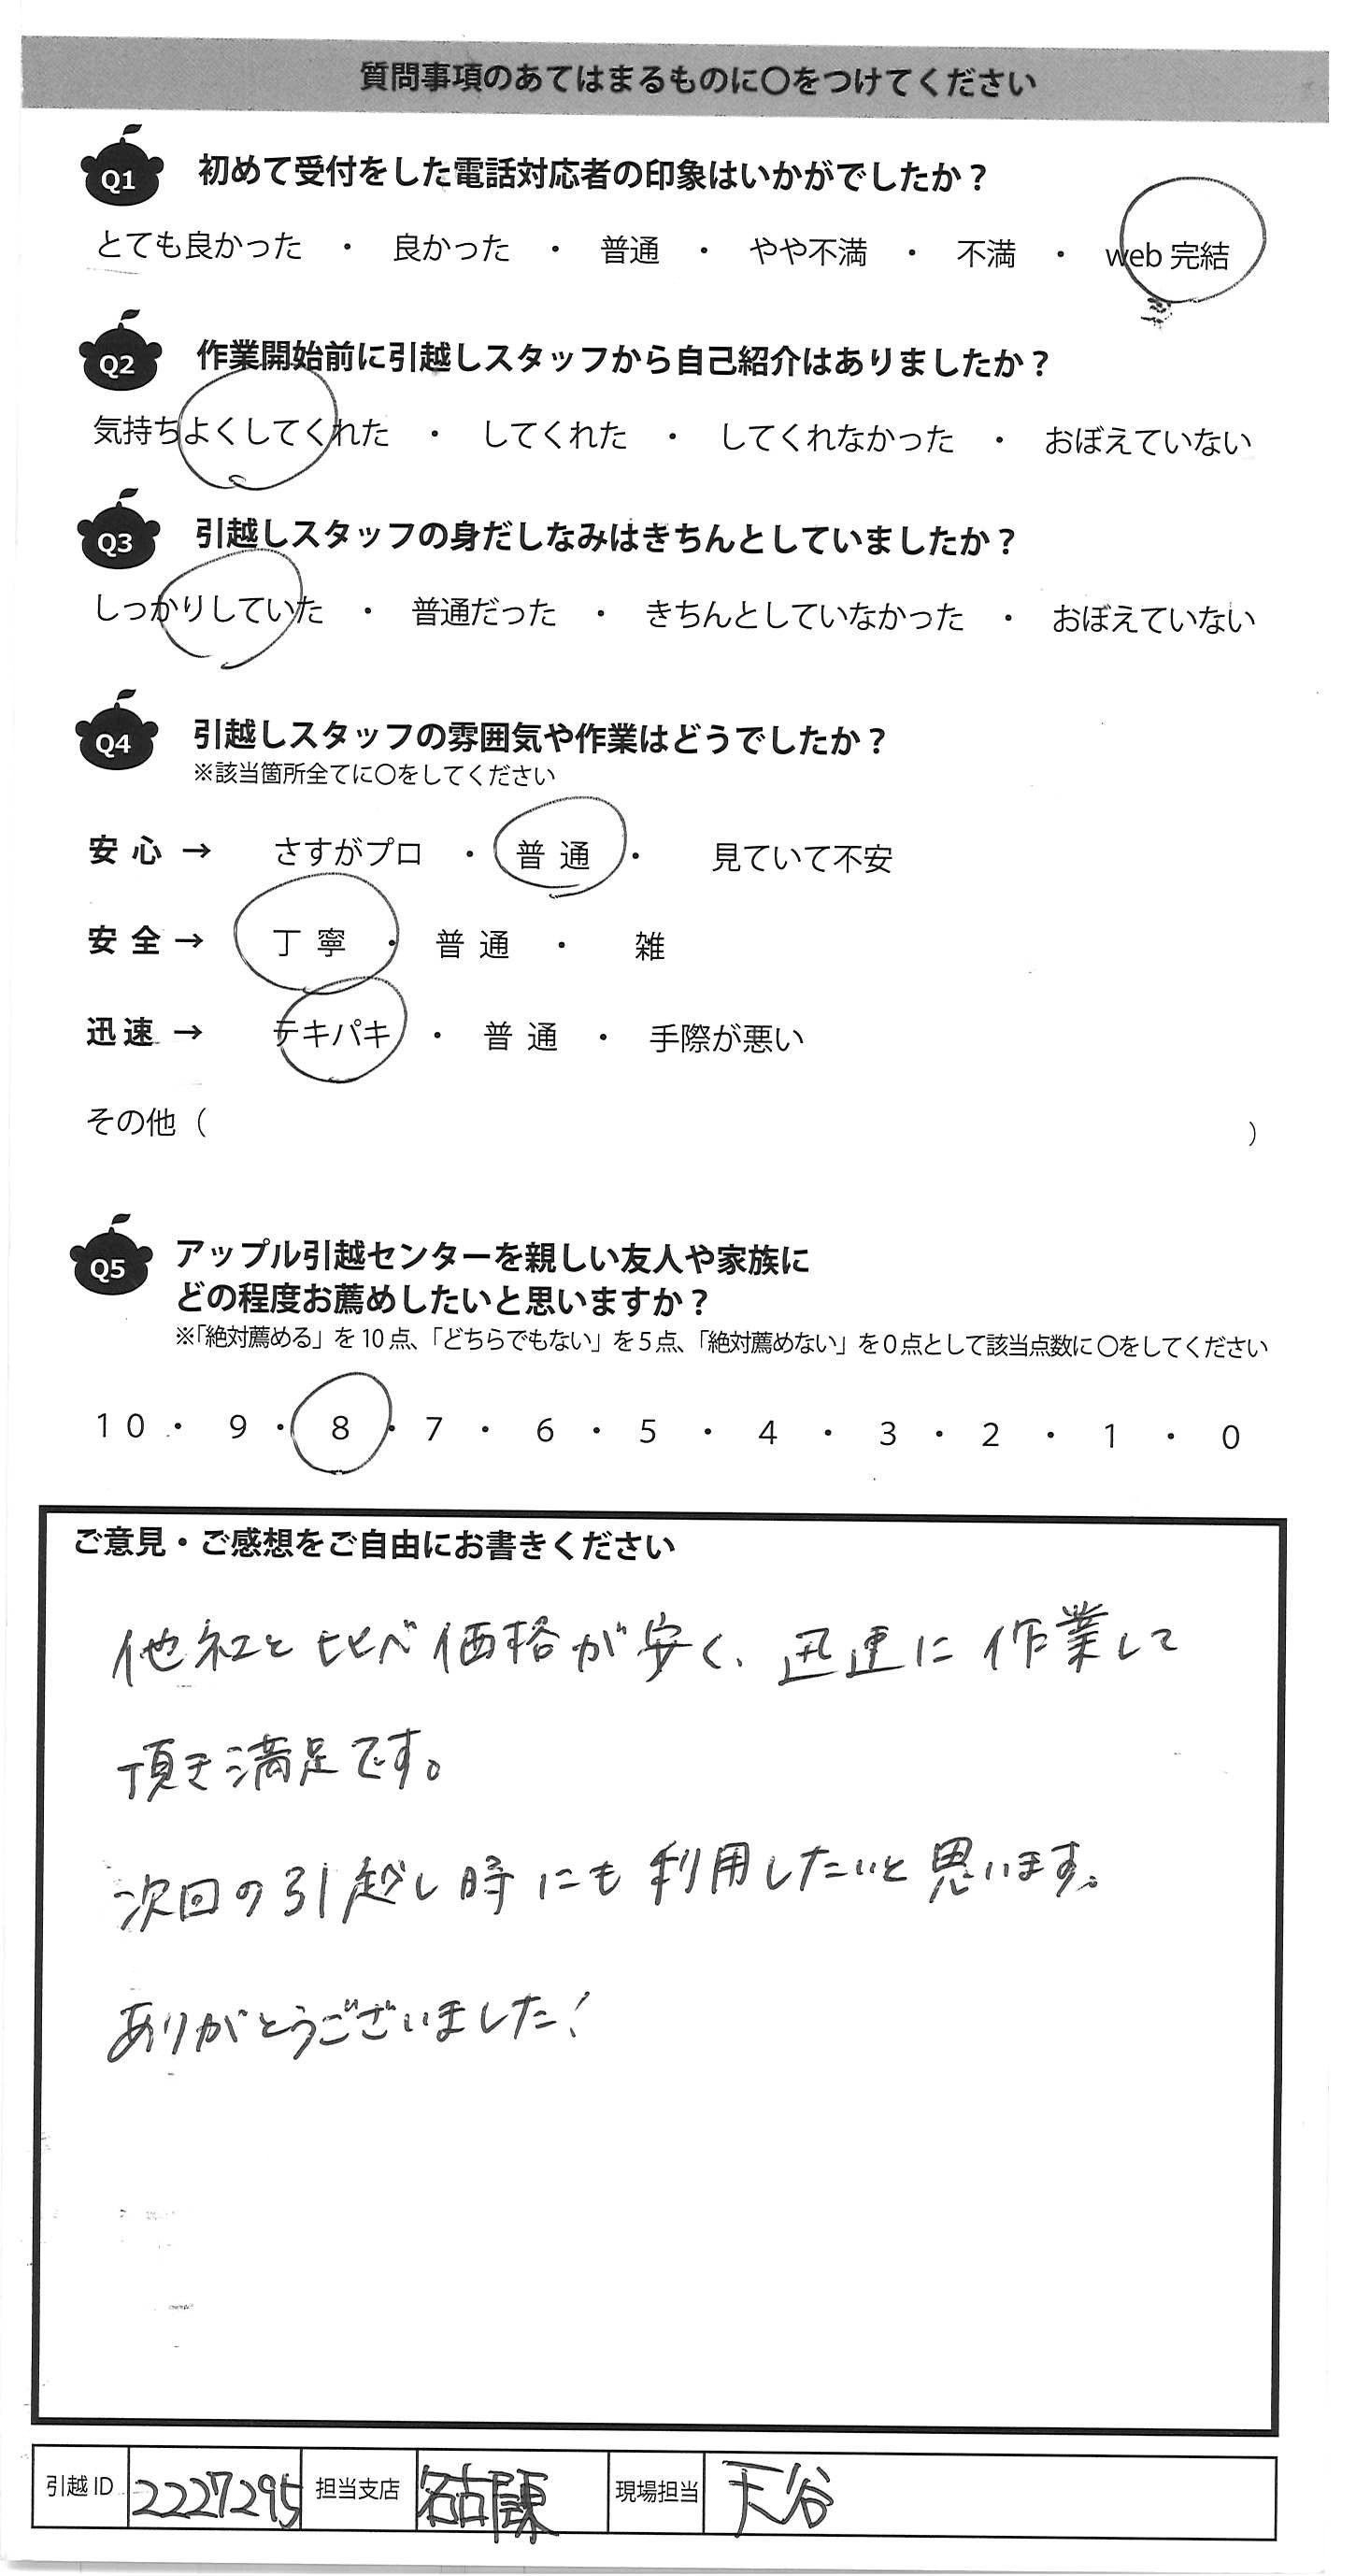 質問事項のあてはまるものに〇をつけてください
Q1 初めて受付をした電話対応者の印象はいかがでしたか？
とても良かった ・ 良かった ・ 普通 ・ やや不満 ・ 不満 ・ web 完結
Q2 作業開始前に引越しスタッフから自己紹介はありましたか？
気持ちよくしてくれた ・ してくれた ・ してくれなかった ・ おぼえていない
Q3 引越しスタッフの身だしなみはきちんとしていましたか？
しっかりしていた ・ 普通だった ・ きちんとしていなかった ・ おぼえていない
Q4 引越しスタッフの雰囲気や作業はどうでしたか？
※該当箇所全てに〇をしてください
安心 → さすがプロ ・ 普通 ・ 見ていて不安
安全 → 丁寧 ・ 普通 ・ 雑
迅速 → テキパキ ・ 普通 ・ 手際が悪い
その他（ ）
Q5 アップル引越センターを親しい友人や家族に
どの程度お薦めしたいと思いますか？
※「絶対薦める」を10点、「どちらでもない」を5点、「絶対薦めない」を0点として該当点数に〇をしてください
10 ・ 9 ・ 8 ・ 7 ・ 6 ・ 5 ・ 4 ・ 3 ・ 2 ・ 1 ・ 0
ご意見・ご感想をご自由にお書きください
他社と比べ価格が安く、迅速に作業して
頂き満足です。
次回の引越し時にも利用したいと思います。
ありがとうございました！
引越ID 2227295 担当支店 名古屋東 現場担当 天谷